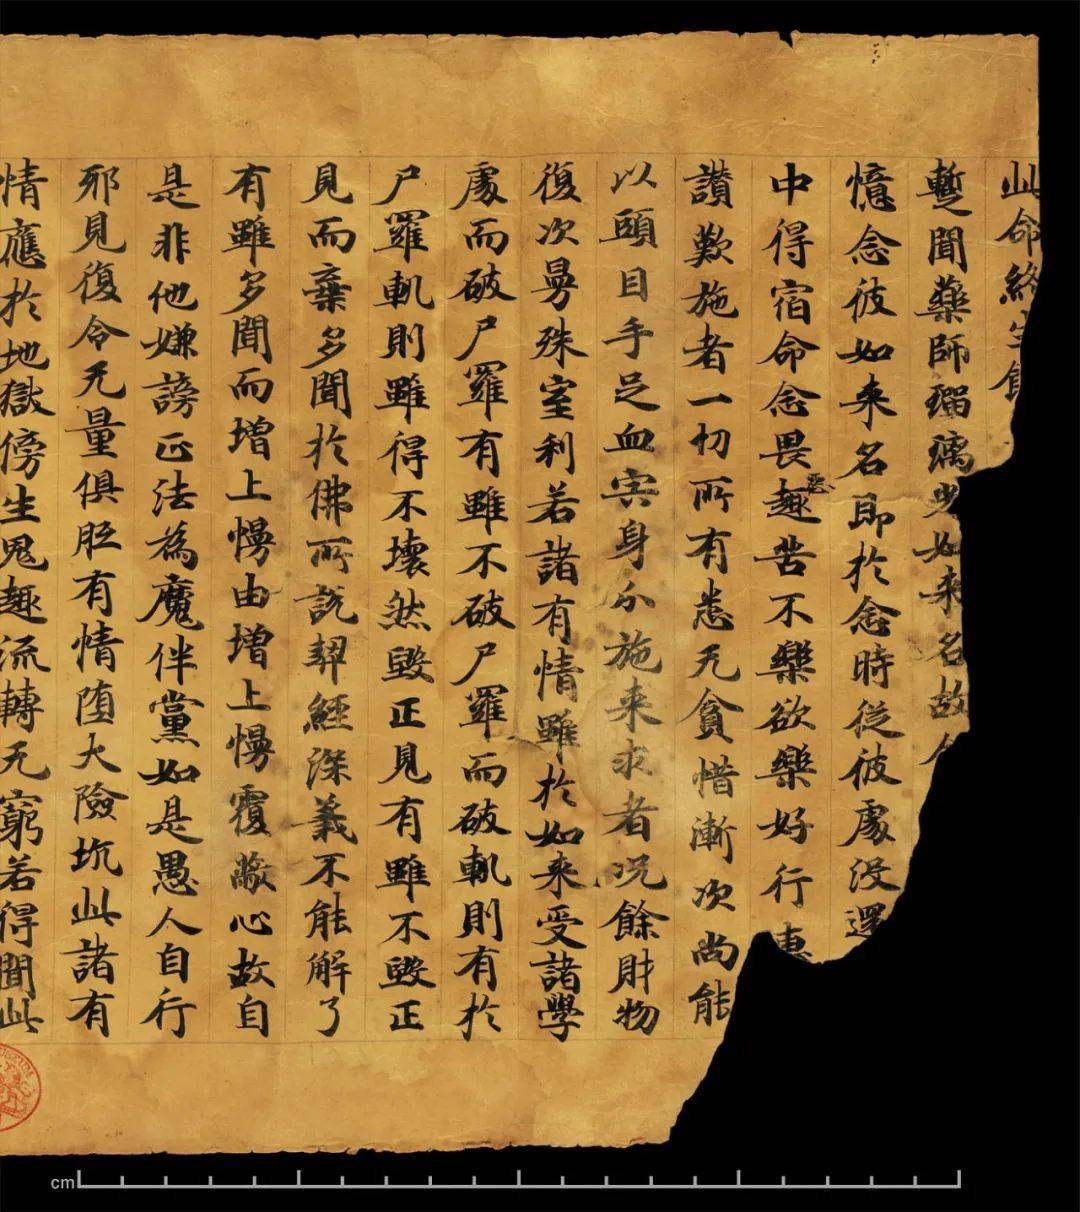 此命終生餓
暫聞藥師瑠璃光如来名故今
憶念彼如来名即於念時從彼處没還
中得宿命念畏惡趣苦不樂欲樂好行惠
讃歎施者一切所有悉无貪惜漸次尚能
以頭目手足血宍身分施来求者况餘財物
復次曼殊室利若諸有情雖於如来受諸學
處而破尸羅有雖不破尸羅而破軌則有於
尸羅軌則雖得不壞然毀正見有雖不毀正
見而棄多聞於佛所說契經深義不能解了
有雖多聞而增上慢由增上慢覆蔽心故自
是非他嫌謗正法為魔伴黨如是愚人自行
邪見復令无量俱胝有情堕大險坑此諸有
情應於地獄傍生鬼趣流轉无窮若得聞此
cm